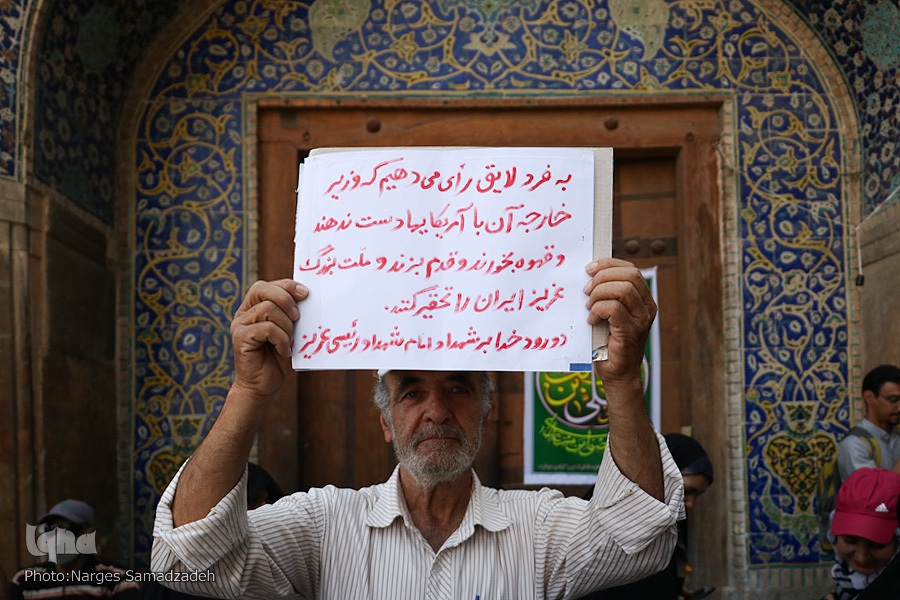 به فرد لایق رأی می دهیم که وزیر
خارجه آن با آمریکاییها دست ندهند
و قهوه بخورند و قدم بزند و ملّت بزرگ
عزیز ایران را تحقیر کنند.
درود خدا بر شهدا و امام شهدا و رئیسی عزیز
iqna
Photo:Narges Samadzadeh